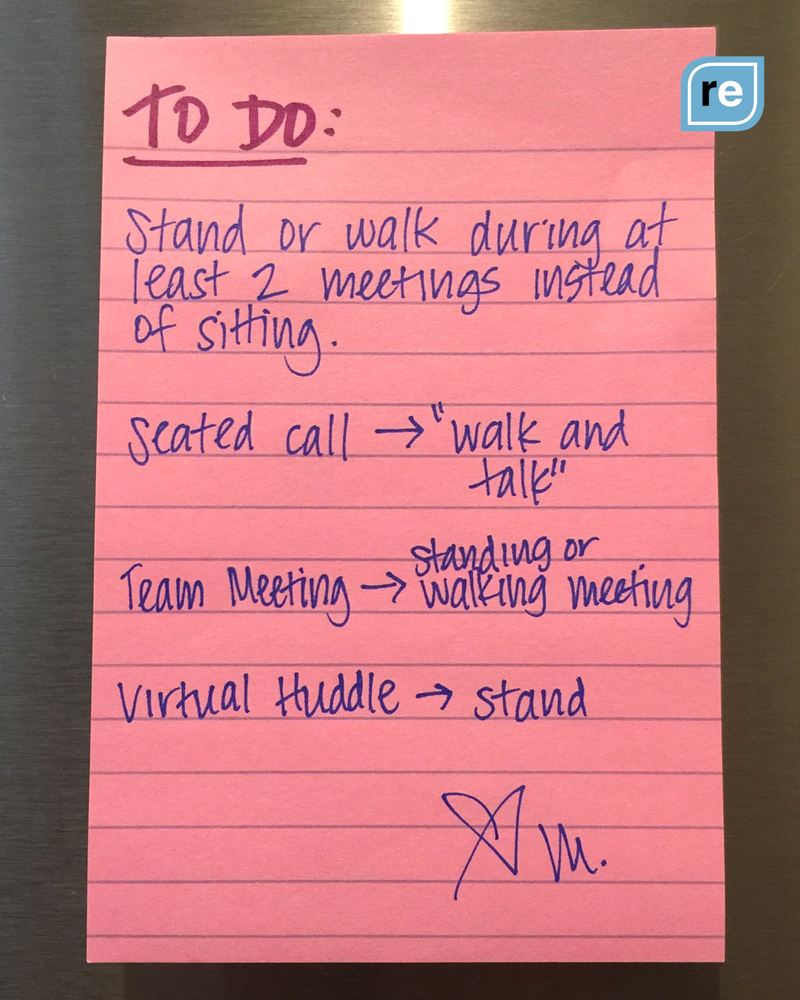 re
TO DO:
Stand or walk during at
least 2 meetings instead
of sitting.
Seated call → "walk and
talk"
Team Meeting → standing or
walking meeting
Virtual Huddle → stand
M.